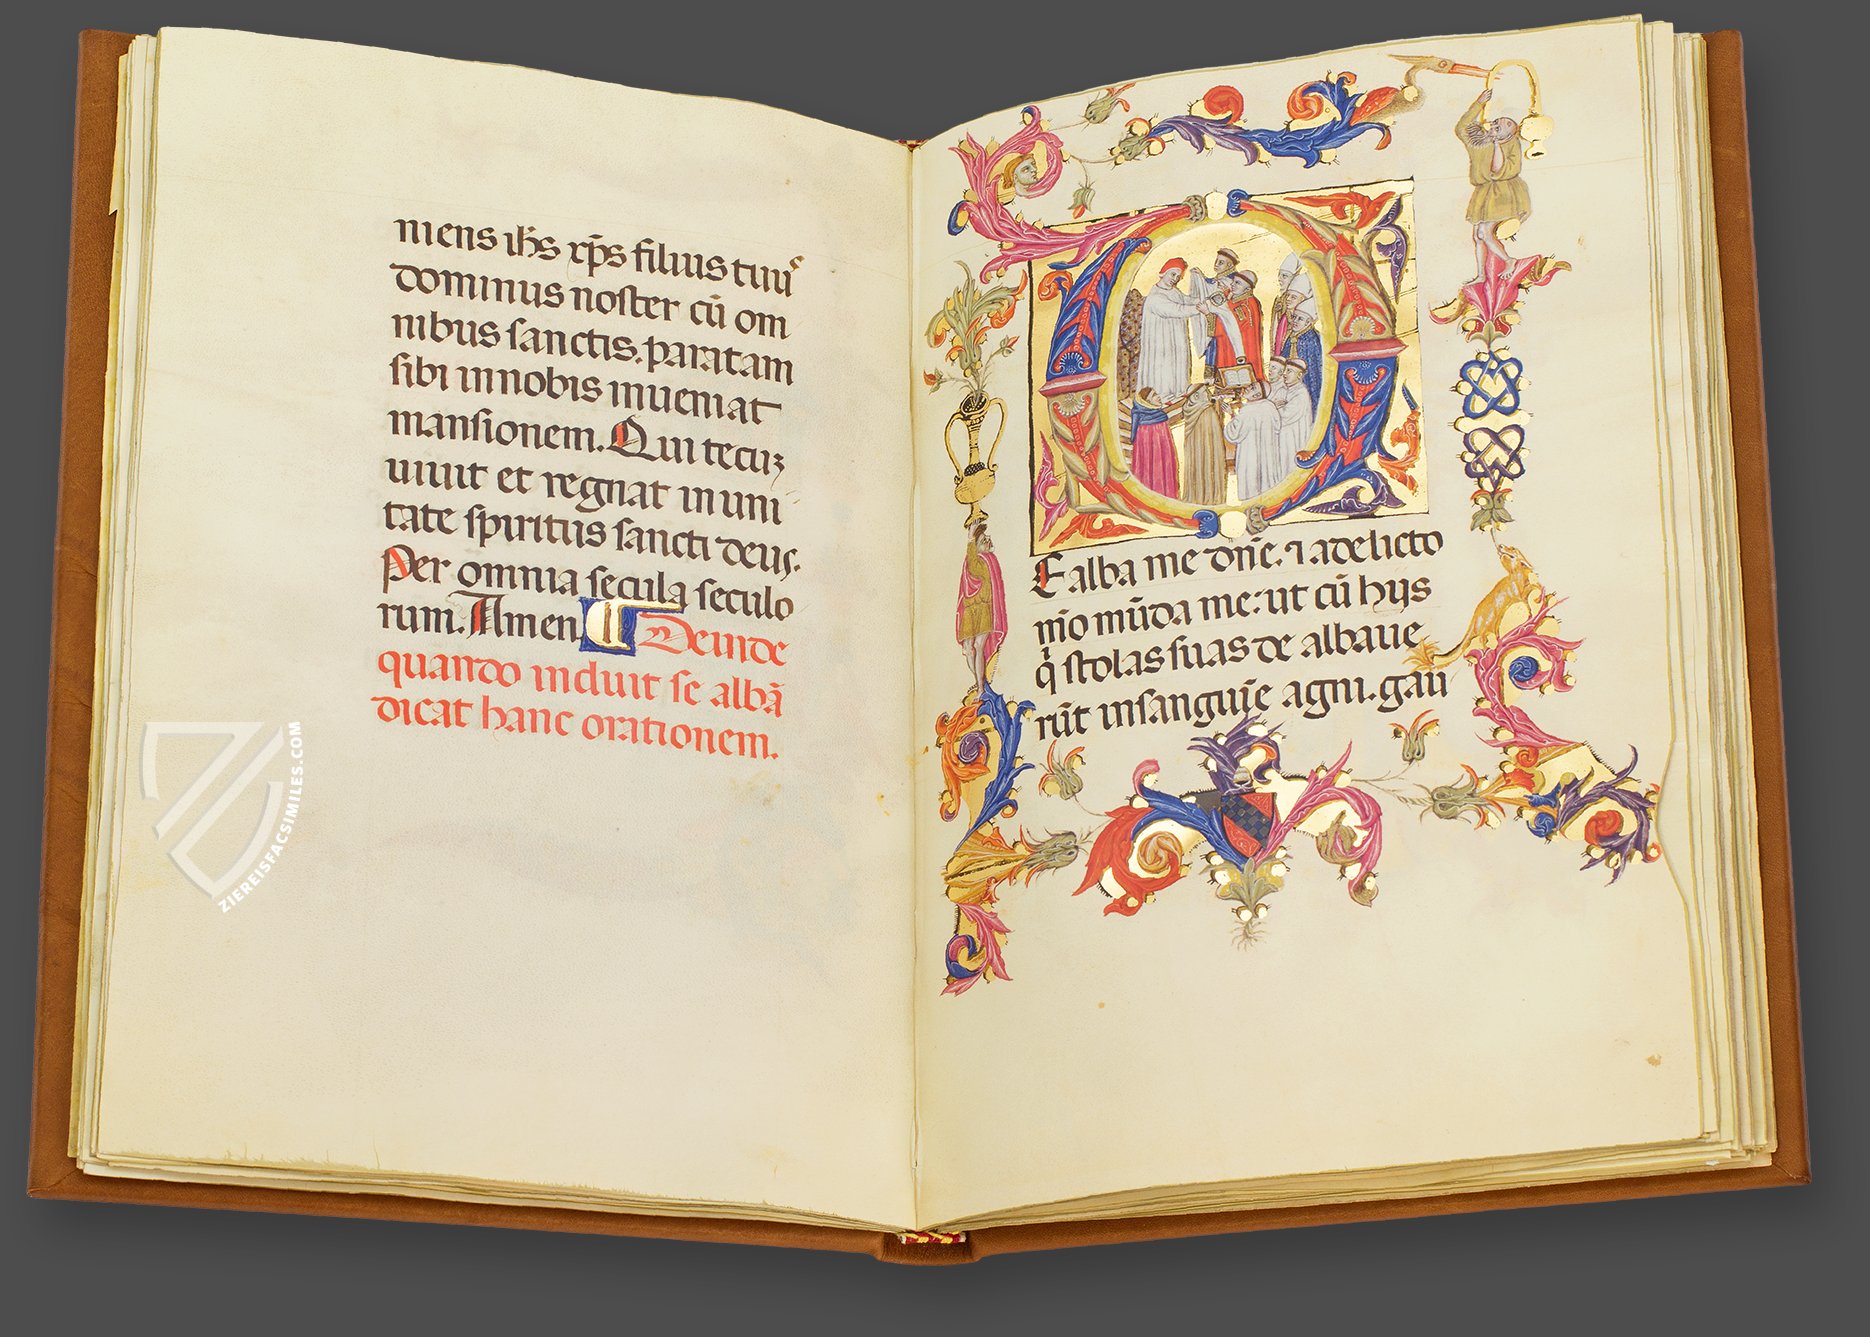 niens ih̄s xp̄s filius tuus
dominus noster cū om
nibus sanctis. paratam
sibi in nobis inueniat
mansionem. Qui tecuꝫ
uiuit et regnat in uni
tate spiritus sancti deus.
Per omnia secula seculo
rum. Amen ¶ Deinde
quando induit se albā
dicat hanc orationem.
Ealba me dn̄e. ⁊ a delicto
mō mūda me: ut cū hijs
q̇ stolas suas de albaue
rūt in sanguīe agni. gau
ZIEREISFACSIMILES.COM